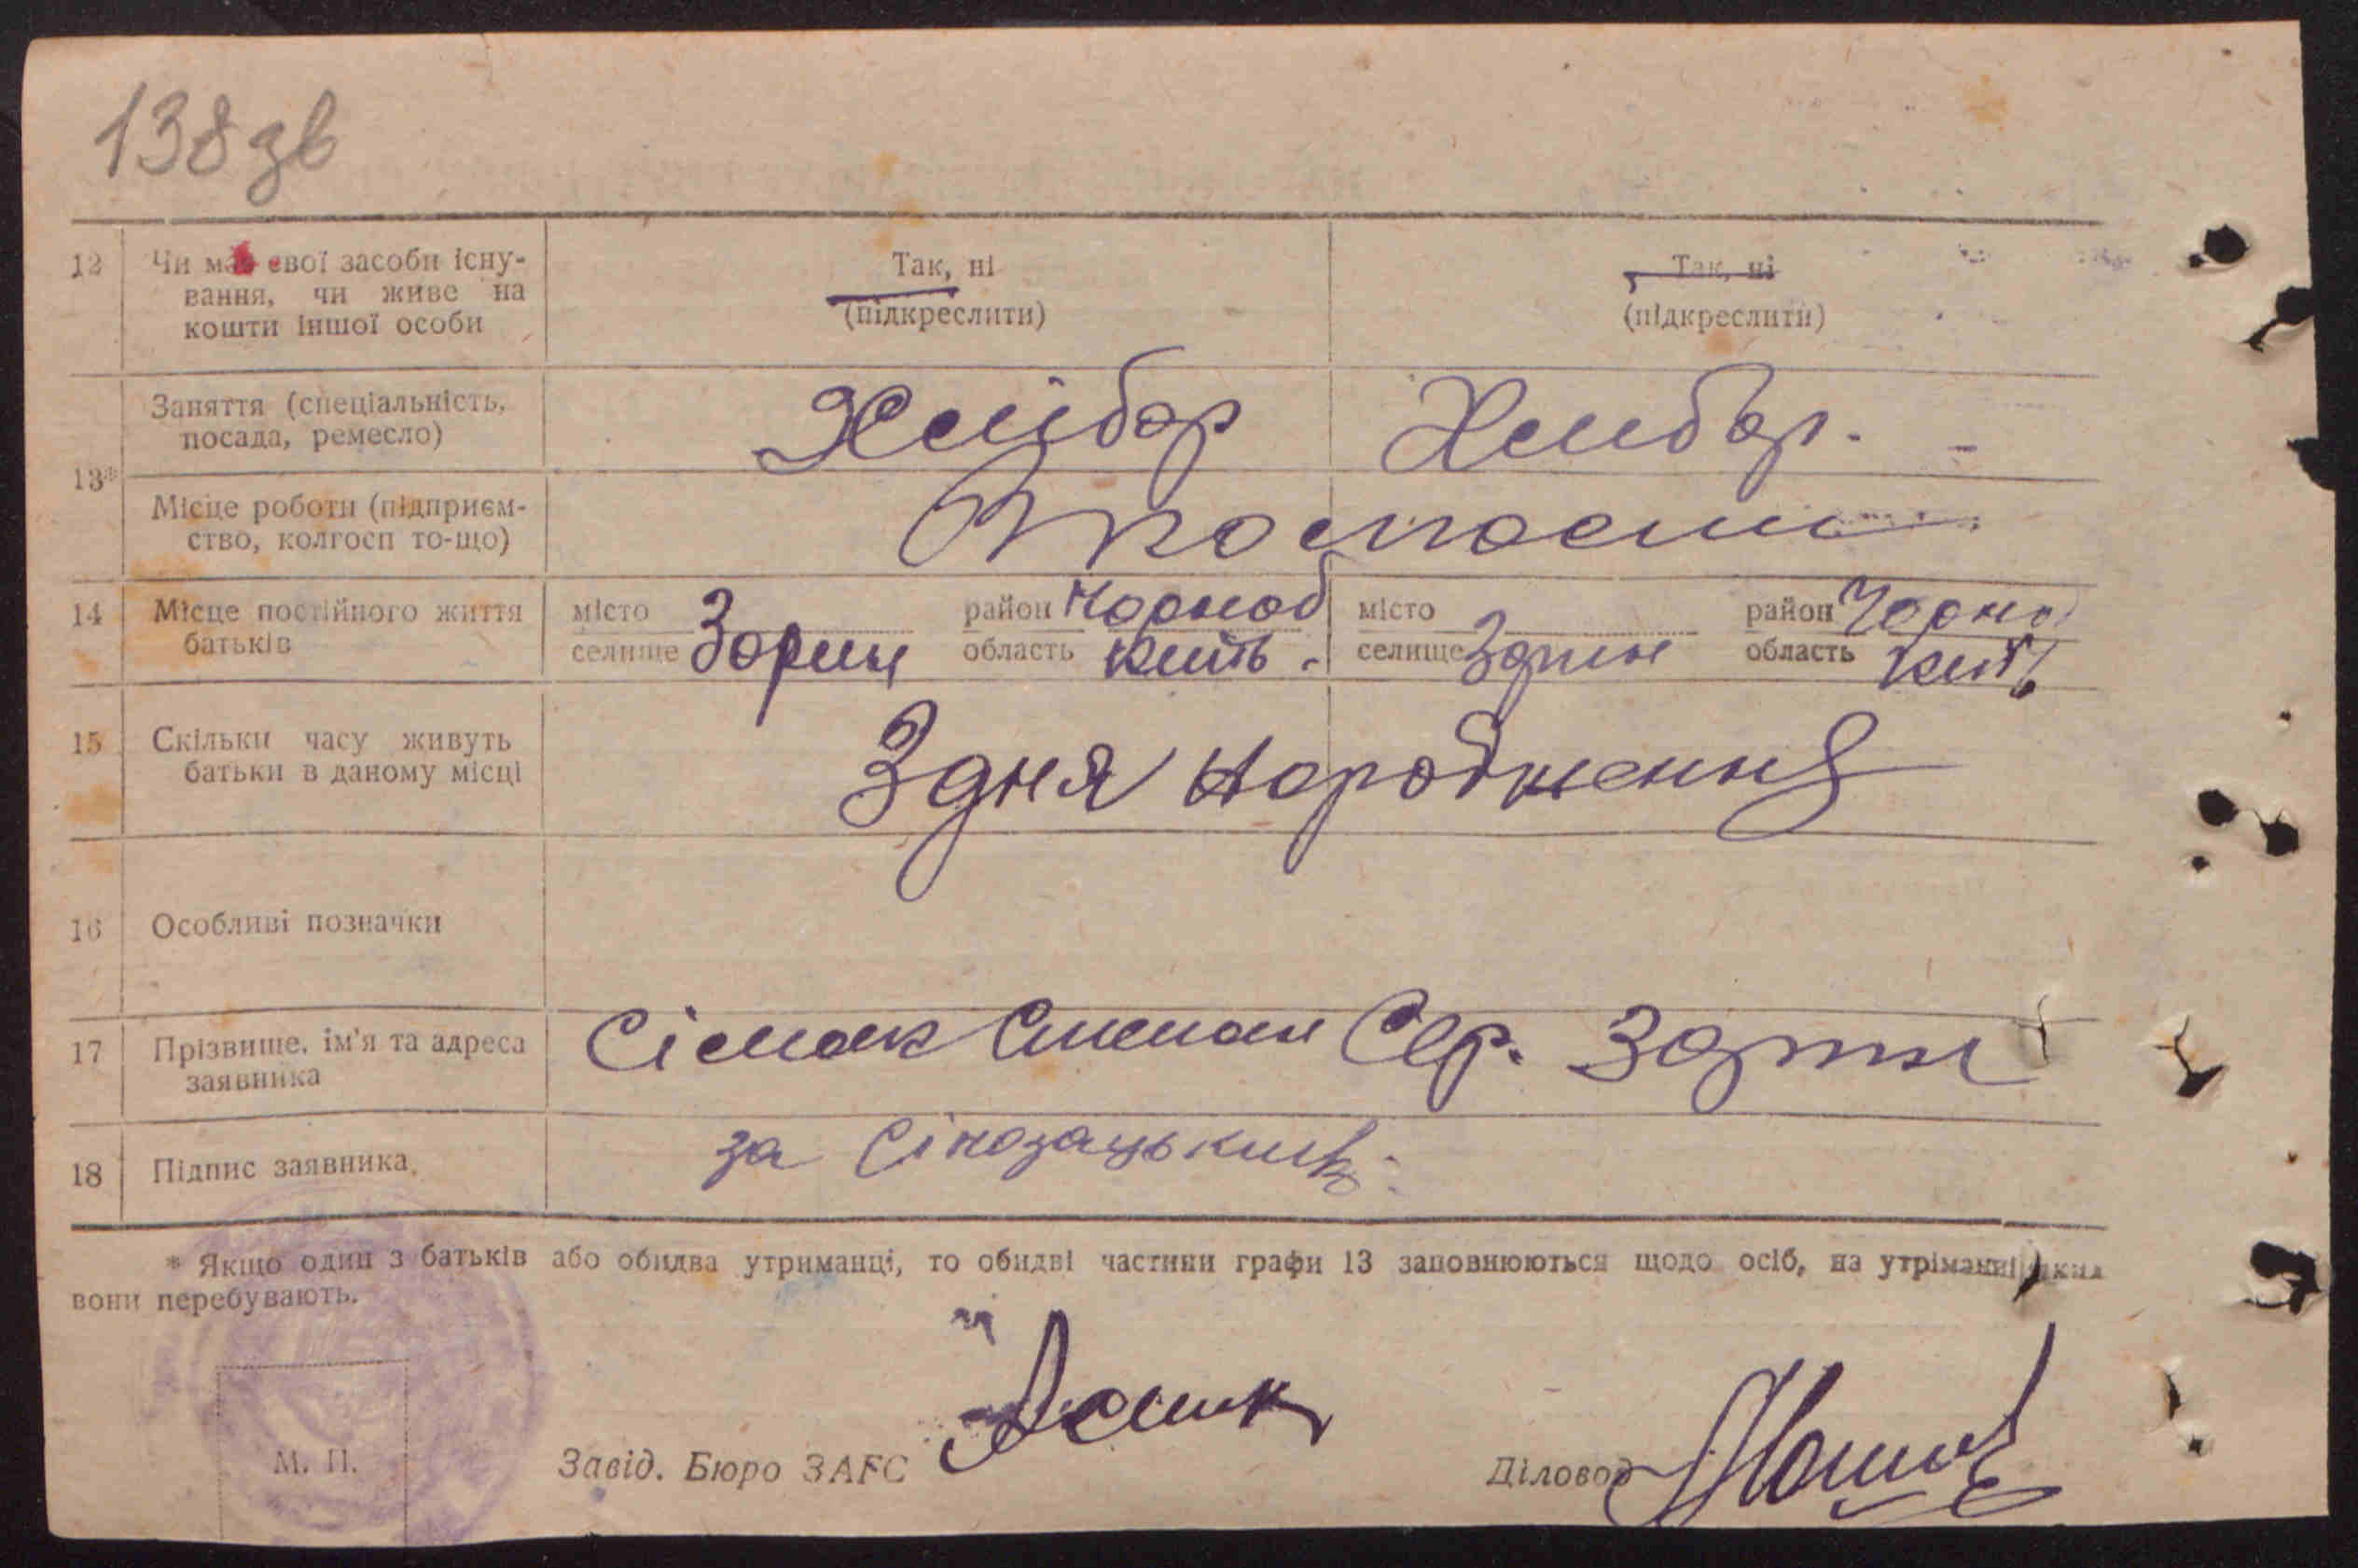 138 зв
12 Чи має свої засоби існу-
вання, чи живе на
кошти іншої особи
Так, ні
(підкреслити)
Так, ні
(підкреслити)
13*
Заняття (спеціальність,
посада, ремесло)
Хлібор
Хлибор.
Місце роботи (підприєм-
ство, колгосп то-що)
14 Місце постійного життя
батьків
місто
селище Зорин
район Чорноб
область Київ.
місто
селище Зорин
район Чорно
область Київ
15 Скільки часу живуть
батьки в даному місці
З дня народження
16 Особливі позначки
17 Прізвище, ім'я та адреса
заявника
Сімак Степан Сер. Зорин
18 Підпис заявника
за
* Якщо один з батьків або обидва утриманці, то обидві частини графи 13 заповнюються щодо осіб, на утріманні яких
вони перебувають.
М. П.
Завід. Бюро ЗАГС
Діловод